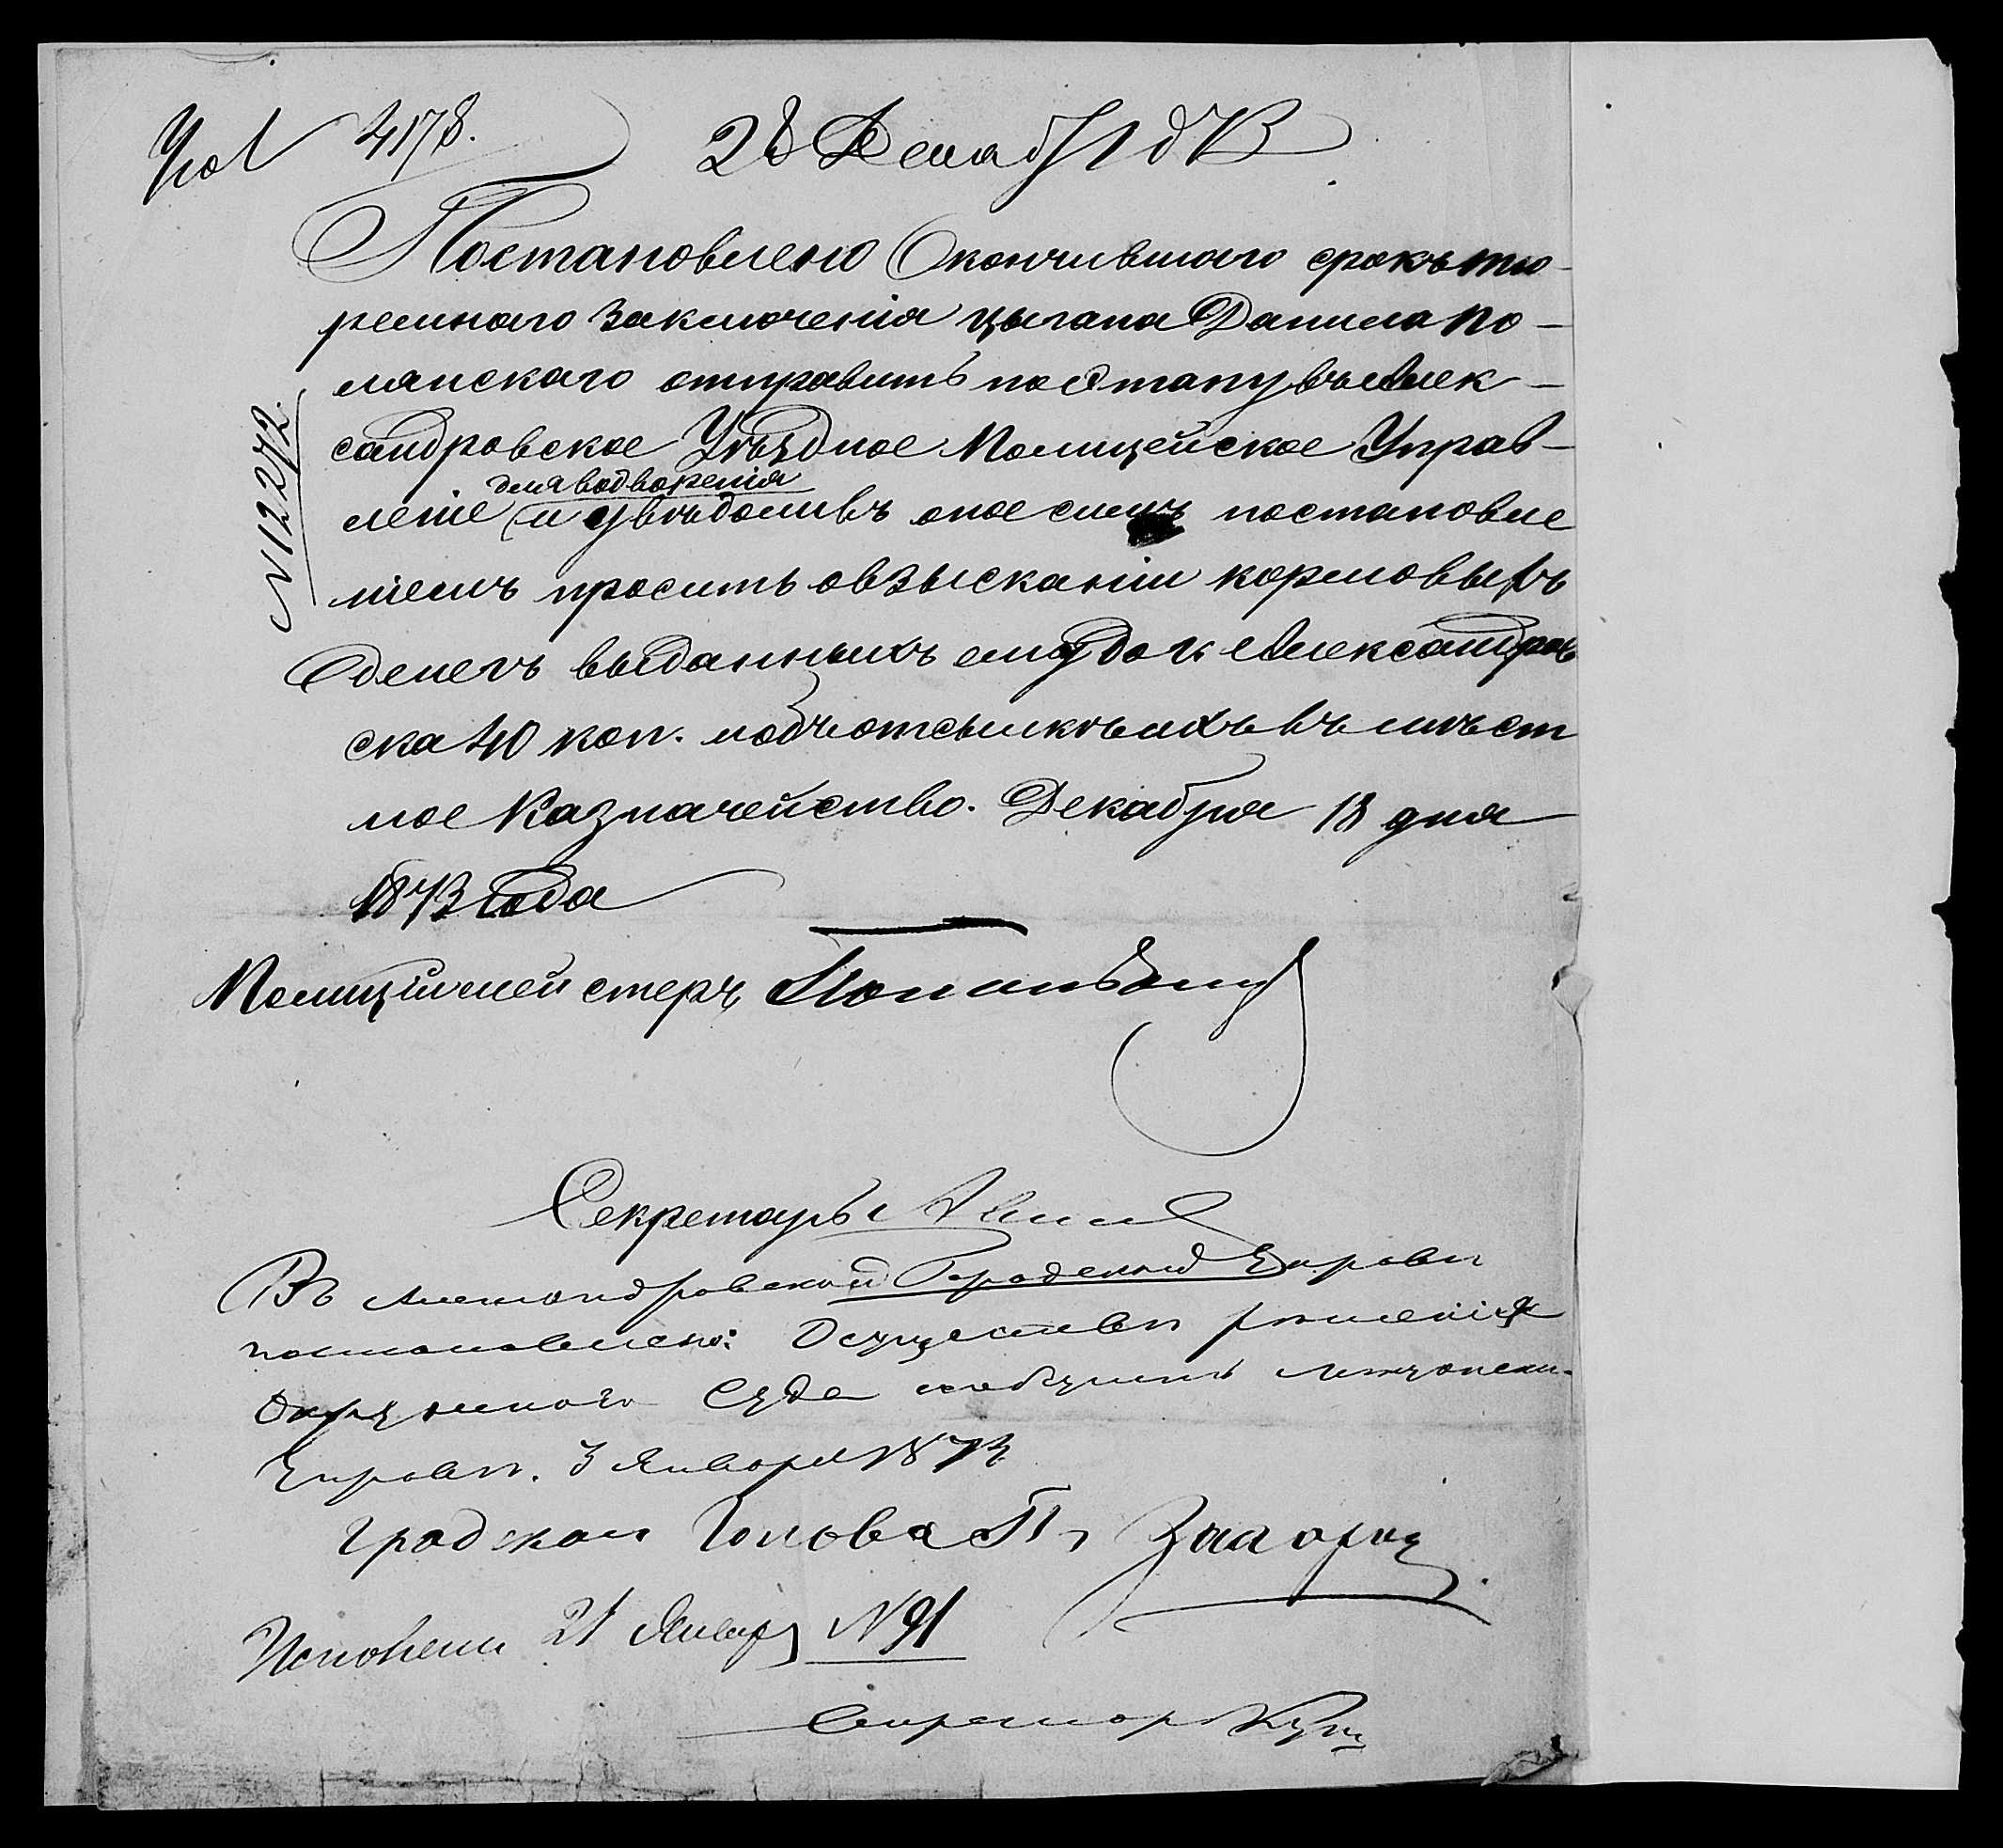 4178. 28 Декабр
Постановлено Окончившаго срокъ тю-
ремнаго заключенія цыгана Данила По-
лянскаго отправить по Этапу въ Алек-
сандровское Уѣздное Полицейское Управ-
для водворенія
леніе и увѣдомивъ оное симъ постановле
ніемъ просить о взысканіи кормовыхъ
денегъ выданныхъ ему до г. Александров
ска 40 коп. и объ отсылкѣ ихъ въ мѣст
ное Казначейство. Декабря 18 дня
1873 года
N 12272.
Полиціймейстеръ
Секретарь
Въ Александровской Городской Управѣ
постановлено: Осуществл рѣшенія
Окружнаго Суда сообщить Мѣщанской
Управѣ. 3 Января 187
Градской Голова П. Захарѣ
Исполнено 21 Январ N 91
Секретарь